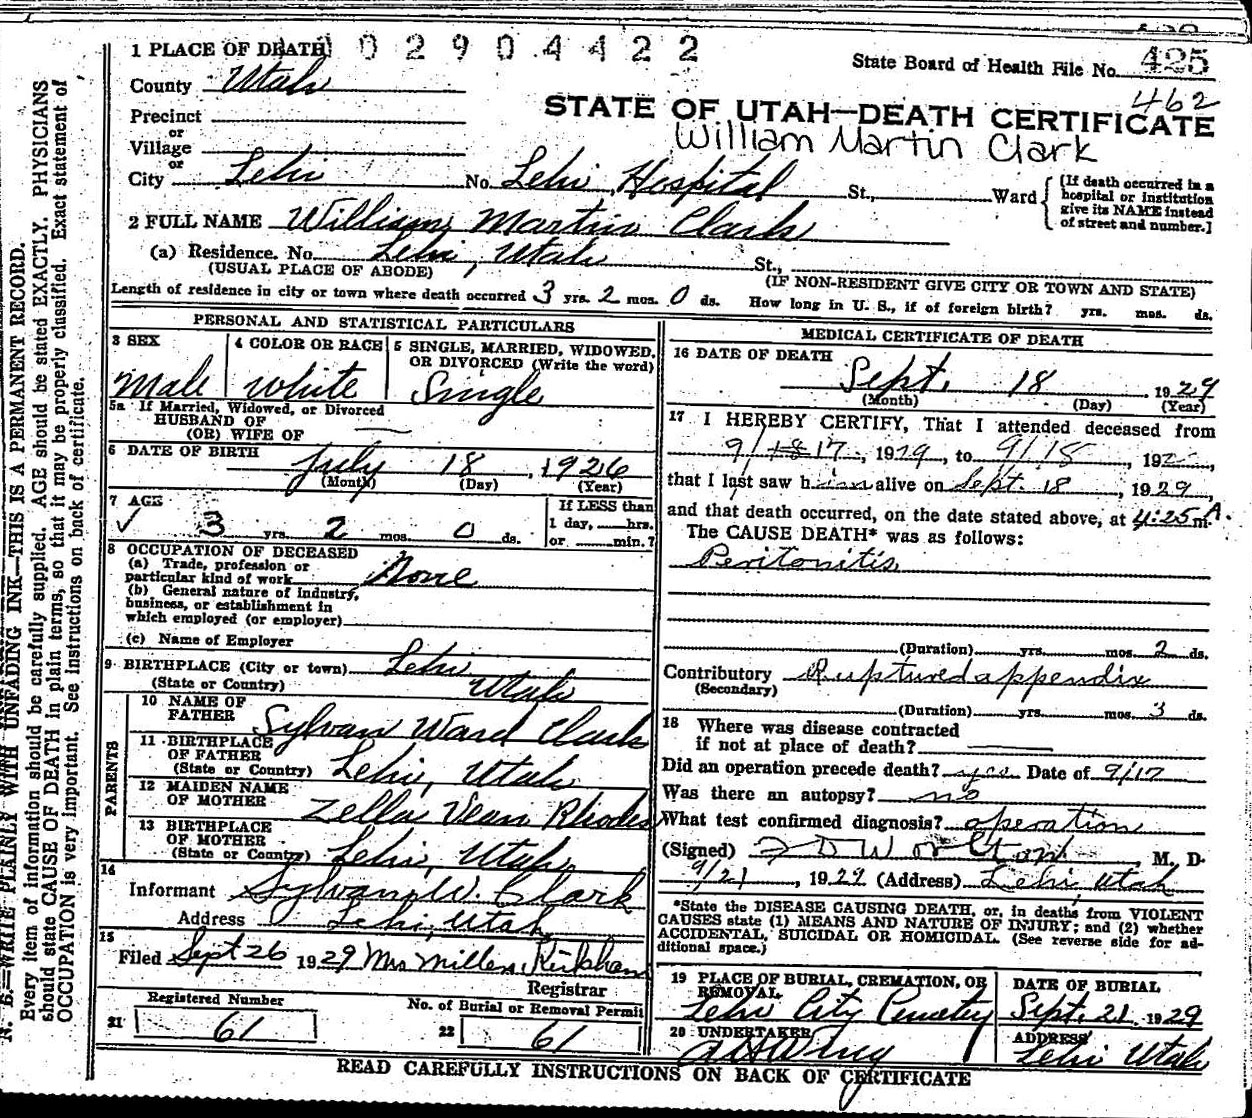 1 PLACE OF DEATH 0 2 9 0 4 4 2 2
State Board of Health File No. 425
County Utah
462
STATE OF UTAH—DEATH CERTIFICATE
William Martin Clark
Precinct
or
Village
or
City Lehi No. Lehi Hospital St., Ward
[If death occurred in a
hospital or institution
give its NAME instead
of street and number.]
2 FULL NAME William Martin Clark
(a) Residence. No. Lehi, Utah St.,
(USUAL PLACE OF ABODE) (IF NON-RESIDENT GIVE CITY OR TOWN AND STATE)
Length of residence in city or town where death occurred 3 yrs. 2 mos. 0 ds. How long in U. S., if of foreign birth? yrs. mos. ds.
PERSONAL AND STATISTICAL PARTICULARS
3 SEX
Male
4 COLOR OR RACE
White
5 SINGLE, MARRIED, WIDOWED,
OR DIVORCED (Write the word)
Single
5a If Married, Widowed, or Divorced
HUSBAND OF
(OR) WIFE OF
6 DATE OF BIRTH
July 18, 1926
(Month) (Day) (Year)
7 AGE
✓ 3 yrs. 2 mos. 0 ds.
If LESS than
1 day, hrs.
or min.?
8 OCCUPATION OF DECEASED
(a) Trade, profession or
particular kind of work None
(b) General nature of Industry,
business, or establishment in
which employed (or employer)
(c) Name of Employer
9 BIRTHPLACE (City or town) Lehi
(State or Country) Utah
PARENTS
10 NAME OF
FATHER Sylvan Ward Clark
11 BIRTHPLACE
OF FATHER
(State or Country) Lehi, Utah
12 MAIDEN NAME
OF MOTHER Zella Vean Rhodes
13 BIRTHPLACE
OF MOTHER
(State or Country) Lehi, Utah
14
Informant Sylvan W. Clark
Address Lehi, Utah
15
Filed Sept 26 1929 Mrs Millen Kirkham
Registrar
Registered Number
21 61
No. of Burial or Removal Permit
22 61
MEDICAL CERTIFICATE OF DEATH
16 DATE OF DEATH
Sept. 18 1929
(Month) (Day) (Year)
17 I HEREBY CERTIFY, That I attended deceased from
9/18 17, 1929, to 9/18, 192
that I last saw him alive on Sept. 18, 1929,
and that death occurred, on the date stated above, at 4:25 m A.
The CAUSE DEATH* was as follows:
Peritonitis
(Duration) yrs. mos. 2 ds.
Contributory Ruptured appendix
(Secondary)
(Duration) yrs. mos. 3 ds.
18 Where was disease contracted
if not at place of death?
Did an operation precede death? yes Date of 9/17
Was there an autopsy? no
What test confirmed diagnosis? operation
(Signed) F D Worlton, M. D.
9/21, 1929 (Address) Lehi Utah
*State the DISEASE CAUSING DEATH, or, in deaths from VIOLENT
CAUSES state (1) MEANS AND NATURE OF INJURY; and (2) whether
ACCIDENTAL, SUICIDAL OR HOMICIDAL. (See reverse side for ad-
ditional space.)
19 PLACE OF BURIAL, CREMATION, OR
REMOVAL
Lehi City Cemetery
DATE OF BURIAL
Sept. 21. 1929
20 UNDERTAKER
A H Wing
ADDRESS
Lehi Utah
READ CAREFULLY INSTRUCTIONS ON BACK OF CERTIFICATE
N. B.—WRITE PLAINLY WITH UNFADING INK—THIS IS A PERMANENT RECORD.
Every item of information should be carefully supplied. AGE should be stated EXACTLY. PHYSICIANS
should state CAUSE OF DEATH in plain terms, so that it may be properly classified. Exact statement of
OCCUPATION is very important. See instructions on back of certificate.